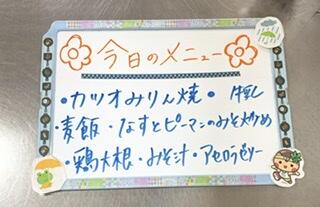 今日のメニュー
・カツオみりん焼・ 牛乳
・麦飯・なすとピーマンのみそ炒め
・鶏大根・みそ汁・アセロラゼリー